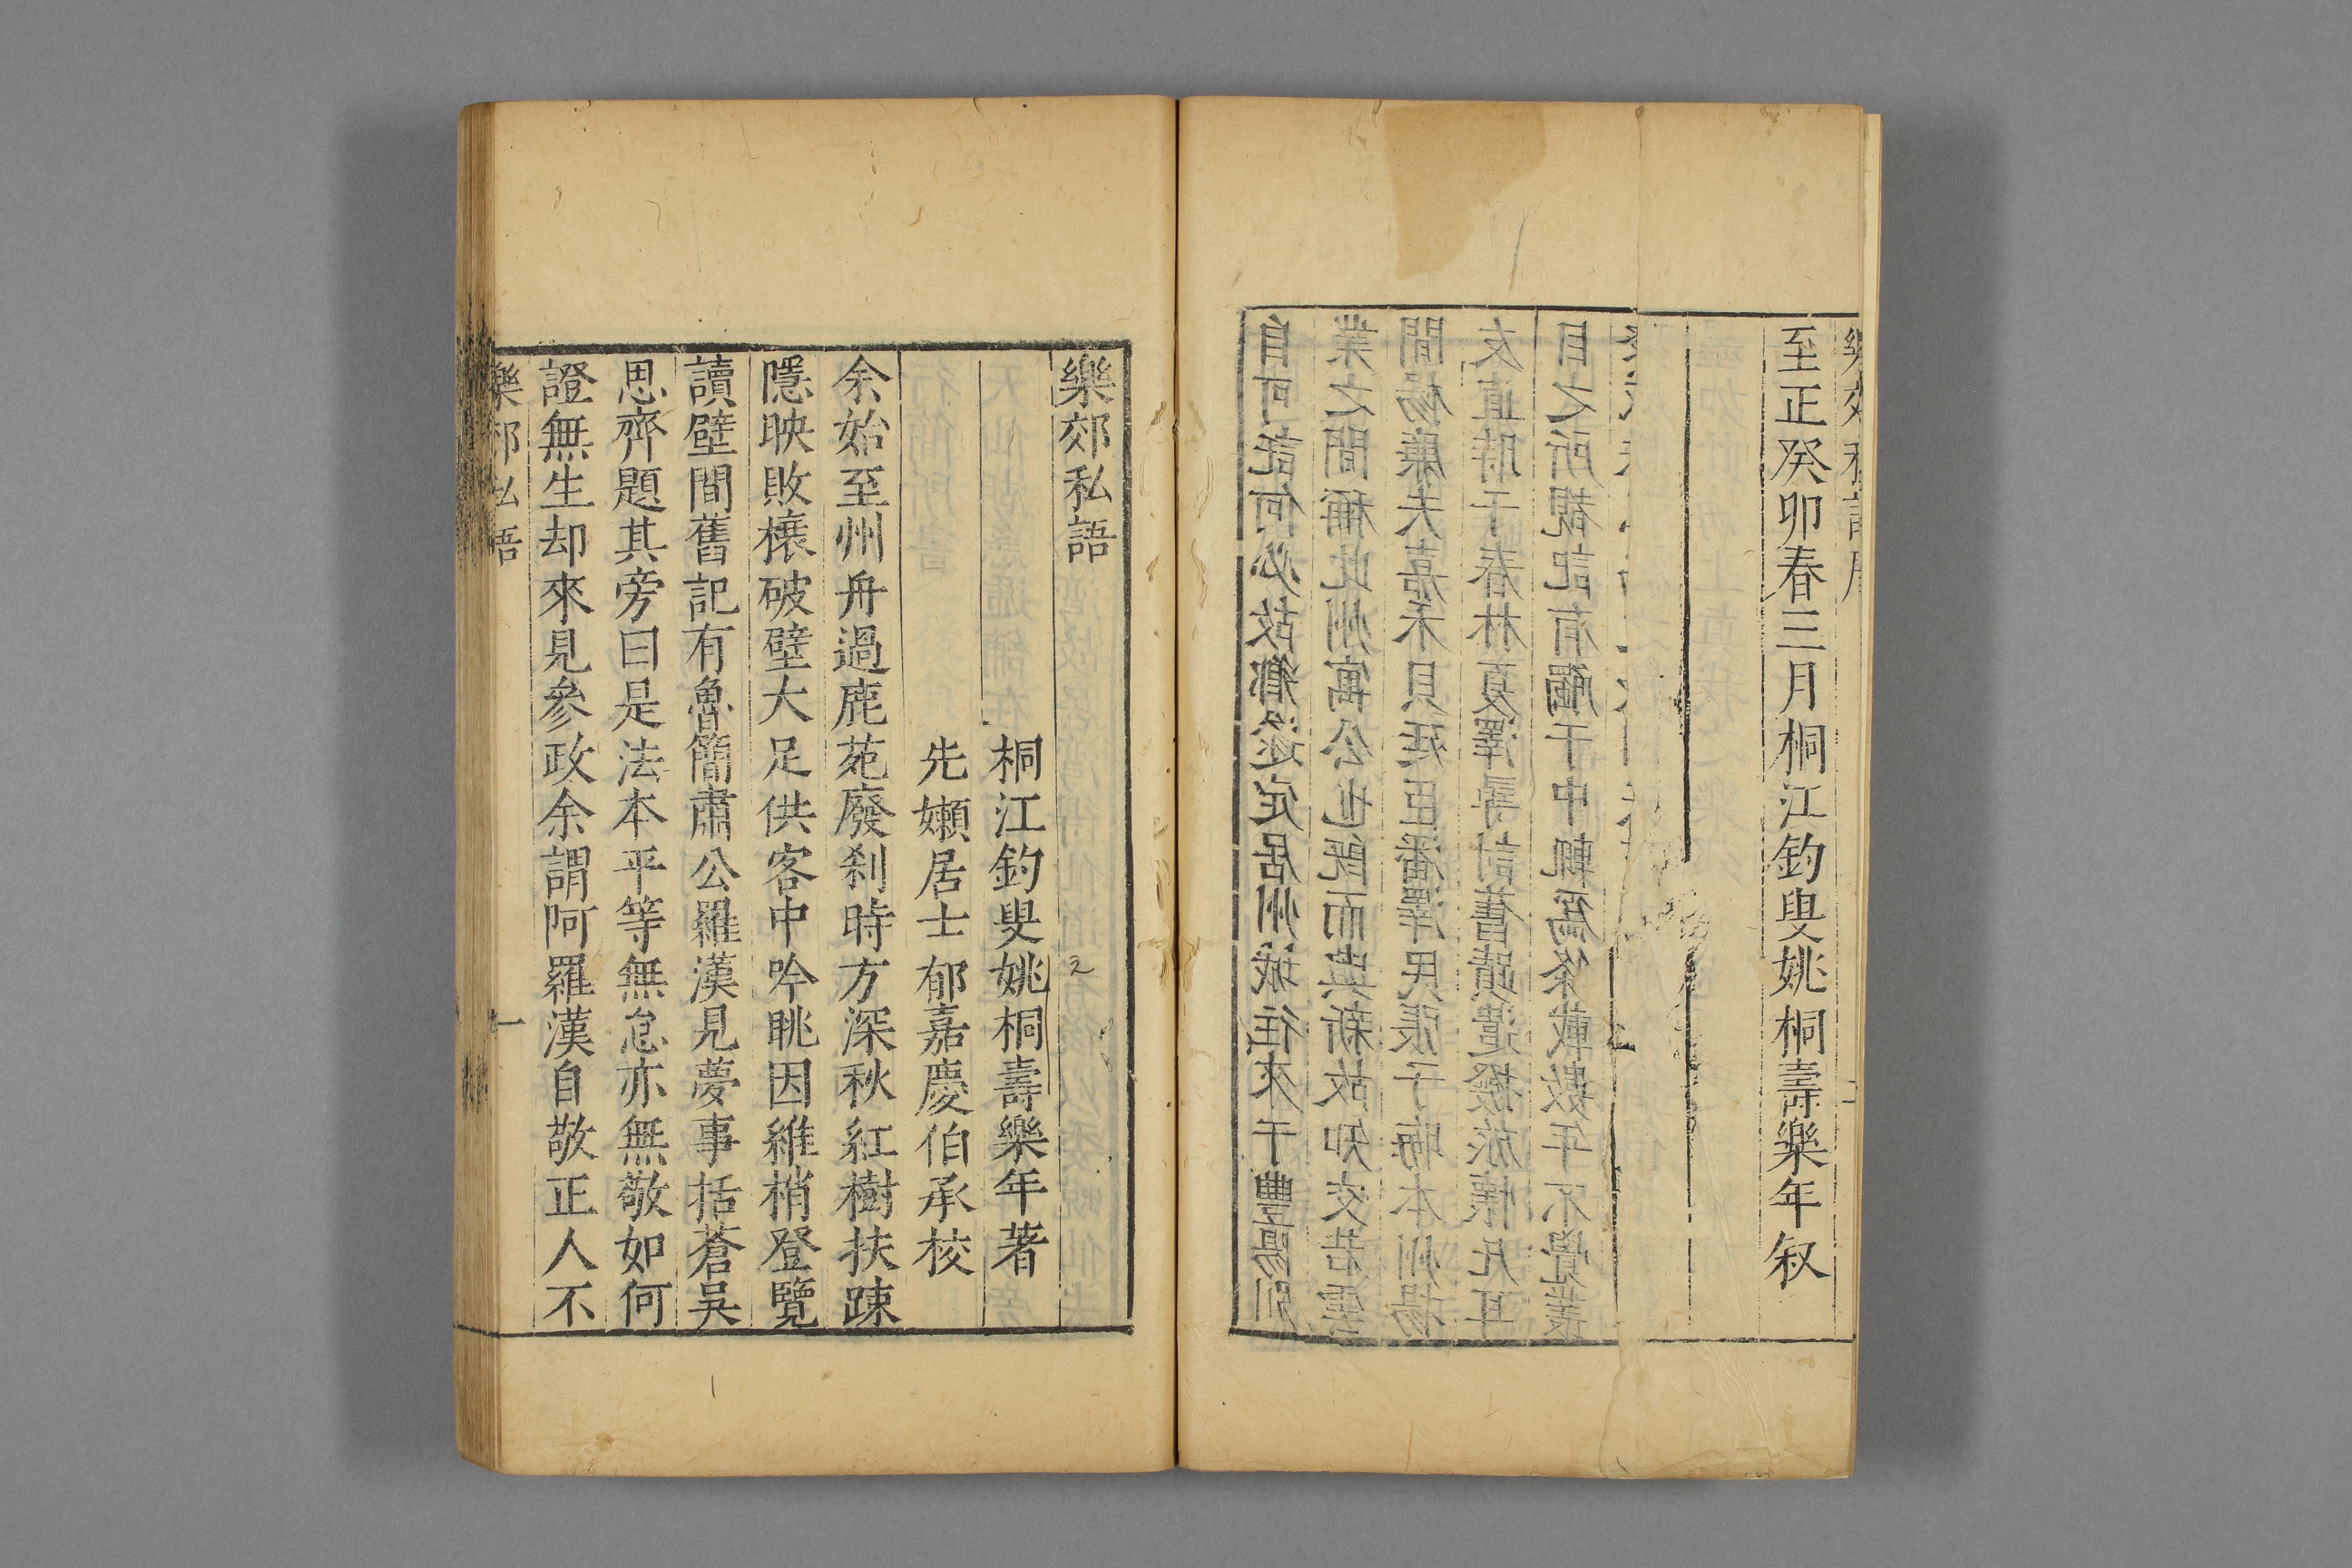 至正癸卯春三月桐江釣叟姚桐壽樂年叙
自可託何必故鄉遂定居州城往來于豐
業之間稱此州寓公也既而與新故知交若
間楊廉夫嘉禾貝廷臣潘澤民張子晦本州楊
友直時于春林夏澤尋討舊蹟遣撥旅懷凡耳
目之所觀記有觸于中輒爲條載數年不覺叢
樂郊私語
桐江釣叟姚桐壽樂年著
先嬾居士郁嘉慶伯承校
余始至州舟過鹿苑廢刹時方深秋紅樹扶踈
隱映敗榱破壁大足供客中吟眺因維梢登覽
讀壁間舊記有魯簡肅公羅漢見夢事括蒼吴
思齊題其旁曰是法本平等無怠亦無敬如何
證無生却來見參政余謂阿羅漢自敬正人不
樂郊私語
一